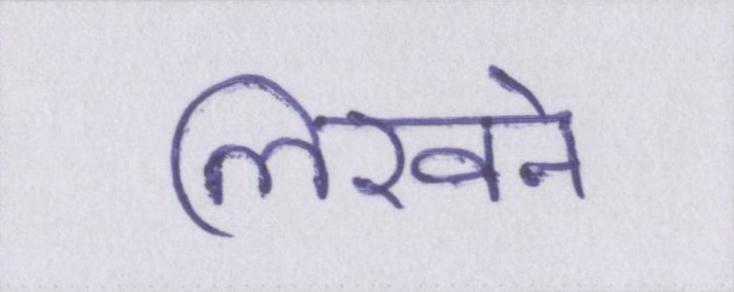 लिखने